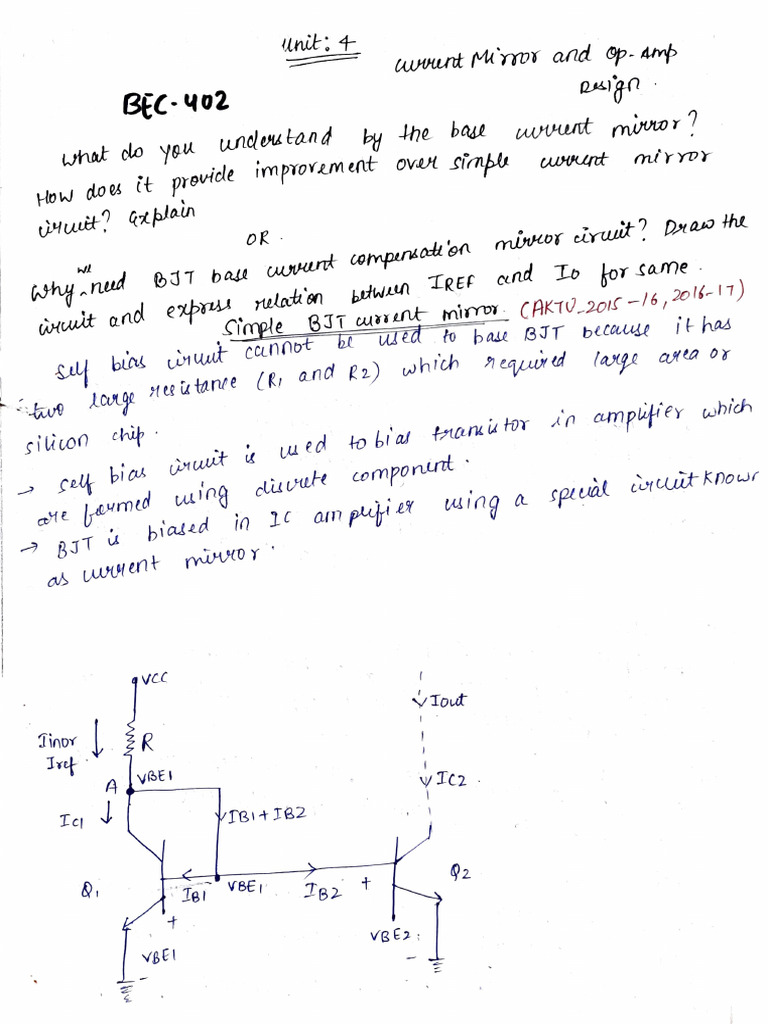 Unit: 4
Current Mirror and Op-Amp
Design.
BEC-402
What do you understand by the base current mirror?
How does it provide improvement over simple current mirror
circuit? Explain
OR.
Why we need BJT base current compensation mirror circuit? Draw the
circuit and express relation between IREF and Io for same.
Simple BJT current mirror. (AKTU_2015-16, 2016-17)
Self bias circuit cannot be used to base BJT because it has
two large resistance (R1 and R2) which required large area or
silicon chip.
→ Self bias circuit is used to bias transistor in amplifier which
are formed using discrete component.
→ BJT is biased in IC amplifier using a special circuit known
as current mirror.
VCC
Iout
Iinor
Iref
R
A
VBE1
IC2
IC1
IB1+IB2
Q1
IB1
VBE1
IB2
+
Q2
+
VBE1
-
VBE2
-